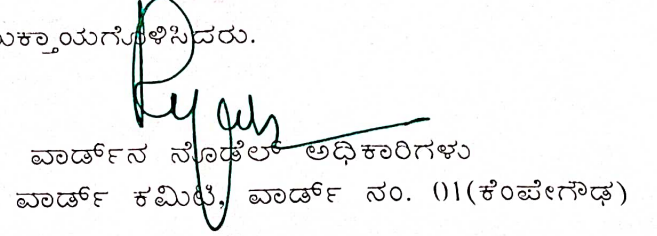 ುಕ್ತಾಯಗೊಳಿಸಿದರು.
ವಾರ್ಡ್‌ನ ನೊಡೆಲ್ ಅಧಿಕಾರಿಗಳು
ವಾರ್ಡ್ ಕಮಿಟಿ, ವಾರ್ಡ್ ನಂ. 01(ಕೆಂಪೇಗೌಡ)